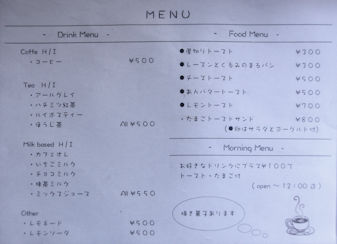 MENU
- Drink Menu -
Coffe H/I
・コーヒー ¥500
Tea H/I
・アールグレイ
・ハチミツ紅茶
・ルイボスティー
・ほうじ茶 All ¥500
Milk based H/I
・カフェオレ
・いちごミルク
・チョコミルク
・抹茶ミルク
・ミックスジュース All ¥550
Other
・レモネード ¥500
・レモンソーダ ¥500
- Food Menu -
●厚切りトースト ¥300
●レーズンとくるみのまるパン ¥300
●チーズトースト ¥500
●あんバタートースト ¥500
●レモントースト ¥700
・たまごトーストサンド ¥800
(●印はサラダとヨーグルト付)
- Morning Menu -
お好きなドリンクにプラス¥100で
トースト・たまご付
(open ~ 12:00迄)
焼き菓子あります